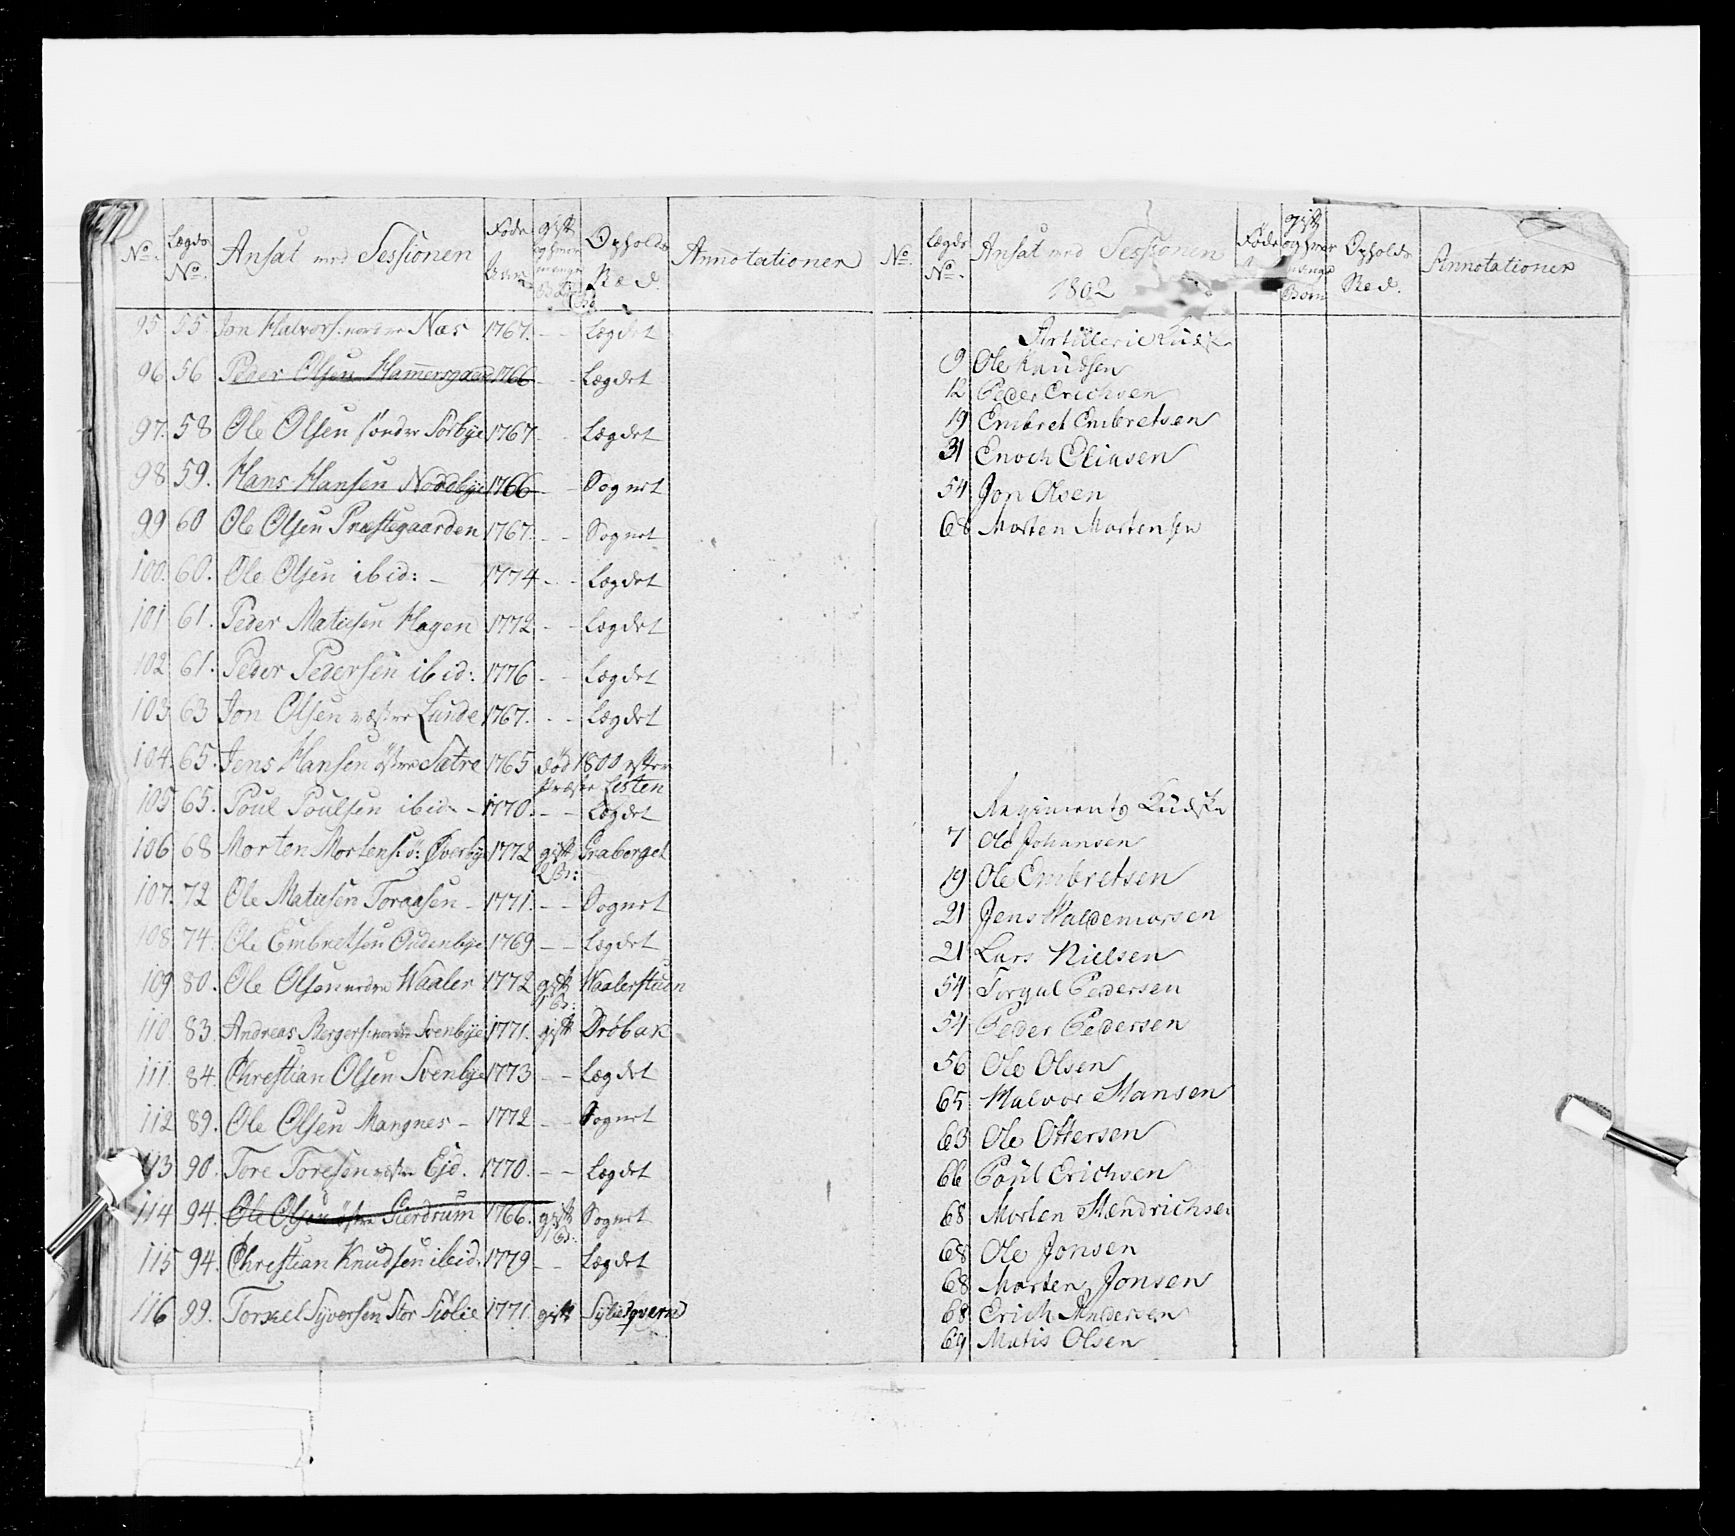 No. Lægds No. Ansat med Sessionen Føde Aar gift og hvor mange Børn Opholds Stæd. Annotationer
95 55. Jon Halvors: nordre Næs 1767. - - Lægdet
96 56 Peder Olsen Hammersgaard 1766 - - Lægdet
97. 58 Ole Olsen søndre Sørbye 1767 - - Lægdet
98 59. Hans Hansen Nordbye 1766 - - Sognet
99 60 Ole Olsen Præstegaarden 1767. - - Sognet
100. 60. Ole Olsen ibid: - 1774 - - Lægdet
101 61. Peder Matiesen Hagen 1772 - - Lægdet
102 61. Peder Pedersen ibid: 1776 - - Lægdet
103 63 Jon Olsen væstre Lunde 1767. - - Lægdet
104. 65. Jens Hansen østre Sætre 1765 død 1800 efter
Præste Listen
105 65. Poul Poulsen ibid - 1770. - - Lægdet
106 68 Morten Mortens: Øverbye 1772 gift Graberget
2 Br:
107. 72 Ole Matiesen Toraasen - 1771. - - Sognet
108 74. Ole Embretsen Oudenbye 1769 - - Lægdet
109 80. Ole Olsen nordre Waaler 1772 gift Waalerstuen
1 Br:
110 83. Andreas Bergers: nordre Svenbye 1771. gift Drøbak
111. 84. Christian Olsen Svenbye 1773 - - Lægdet
112 89. Ole Olsen Mangnes - 1772 - - Sognet
113 90. Tore Toresen væstre Ejd. 1770. - - Lægdet
114 94. Ole Olsen østre Gierdrum 1766. gift Sognet
1 Br:
115 94. Christian Knudsen ibid. 1779 - - Lægdet
116 99. Torkel Syversen Stor Siølie 1771 gift
No. Lægds No. Ansat med Sessionen 1802 Føde gift og hvor mange Børn Opholds Stæd. Annotationer
Artillerie Kudske
9 Ole Knudsen
12 Peder Erichsen
19 Embret Embretsen
31 Enoch Eliasen
54 Jon Olsen
68 Morten Mortensen
Regiments Kudske
7 Ole Johansen
19 Ole Embretsen
21 Jens Haldemorsen
21 Lars Nielsen
54 Torgul Pedersen
54 Peder Pedersen
56 Ole Olsen
65 Halvor Hansen
63 Ole Ottersen
66 Poul Erichsen
68 Morten Hendrichsen
68 Ole Jonsen
68 Morten Jonsen
68 Erich Andersen
69 Matis Olsen